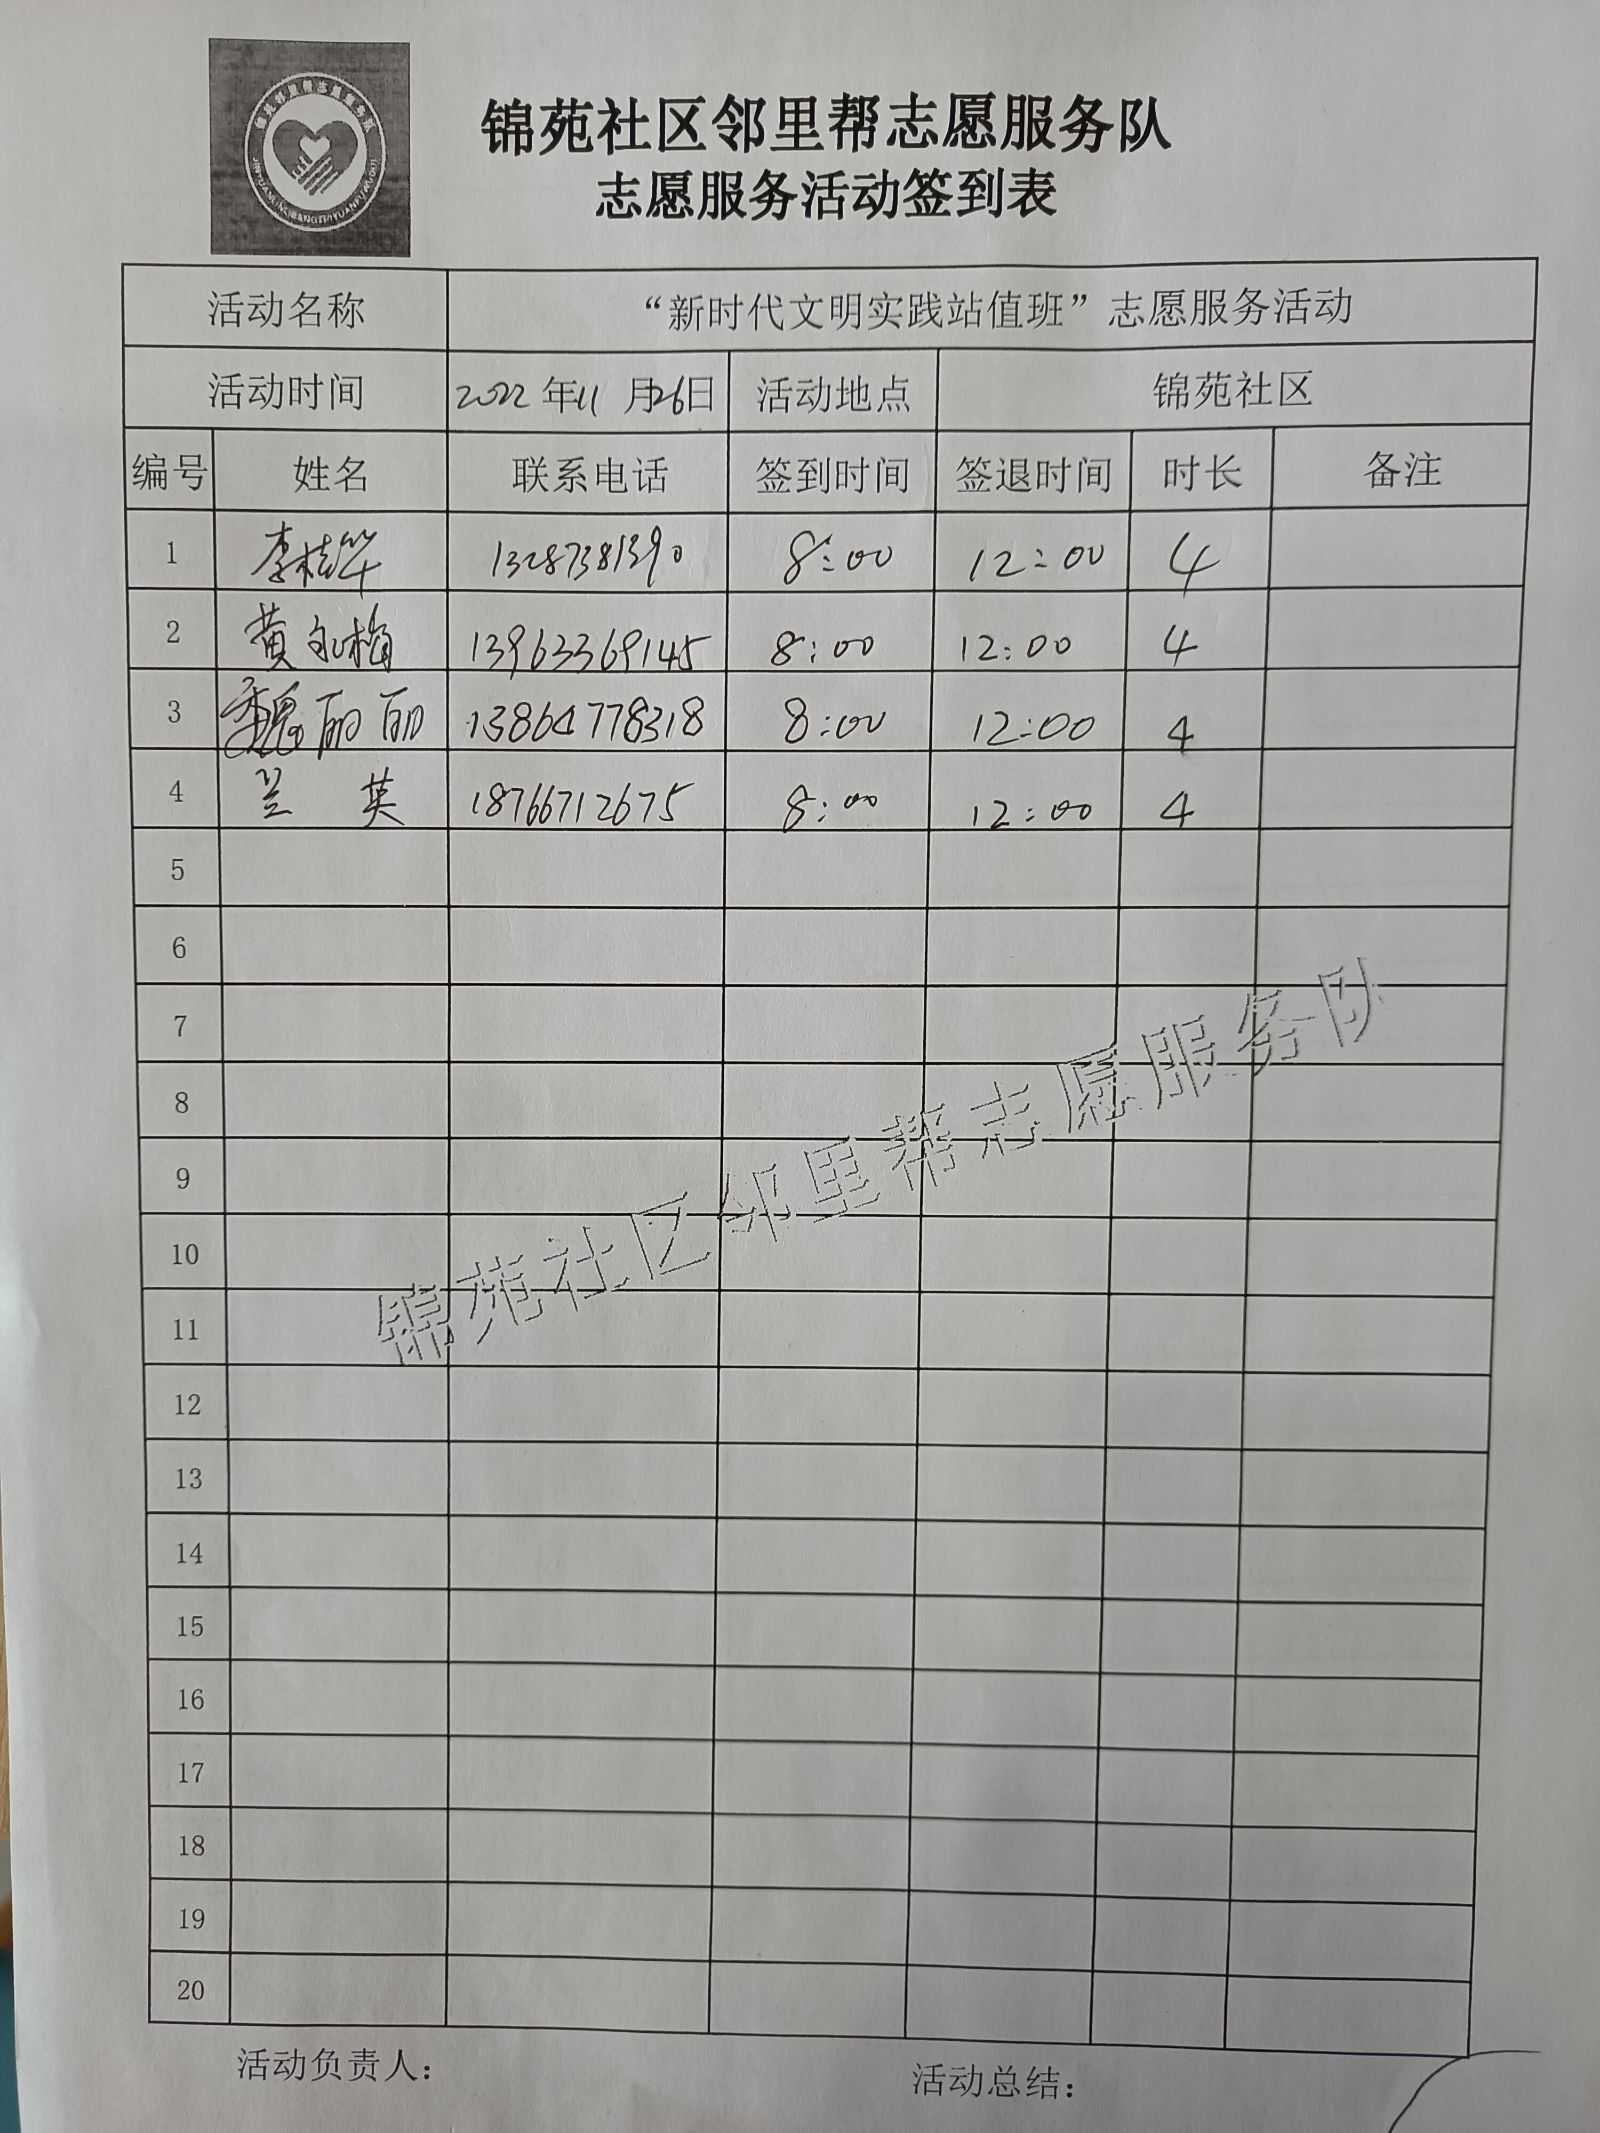 锦苑社区邻里帮志愿服务队
志愿服务活动签到表
活动名称 “新时代文明实践站值班”志愿服务活动
活动时间 2022年11月26日 活动地点 锦苑社区
编号 姓名 联系电话 签到时间 签退时间 时长 备注
1 李桂华 13287381390 8:00 12:00 4
2 黄永梅 13963369145 8:00 12:00 4
3 魏丽丽 13864778318 8:00 12:00 4
4 兰英 18766712675 8:00 12:00 4
5
6
7
8
9
10
11
12
13
14
15
16
17
18
19
20
锦苑社区邻里帮志愿服务队
活动负责人： 活动总结：